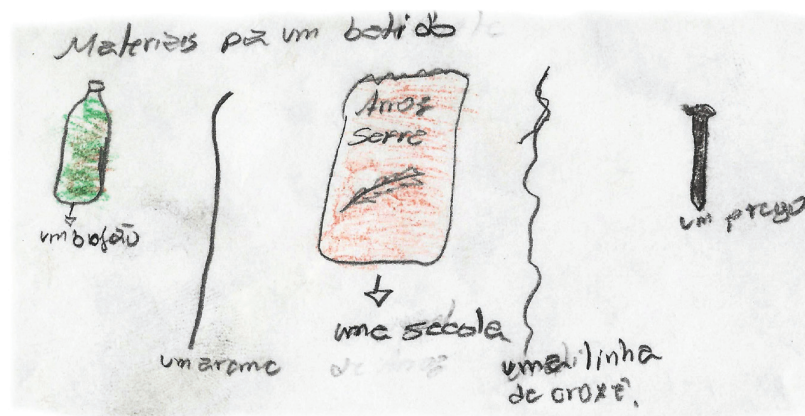 Materiais pa um batido
Arroz
Serre
um bojão
um arame
uma secola
uma linha
de croxê.
um prego